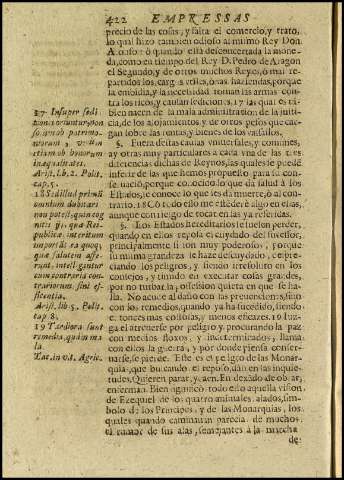 422 EMPRESSAS
precio de las cosas, y falta el comercio, y trato,
lo qual hizo tambien odioso al mismo Rey Don
Alonso: ò quando està desconcertada la mone-
da, como en tiempo del Rey D. Pedro de Aragon
el Segundo, y de otros muchos Reyes, ò mal re-
partidos los cargos vtiles, ò las haziendas, porque
la embidia, y la necessidad toman las armas con-
tra los ricos, y causan sediciones, 17 las quales tã-
bien nacen de la mala administracion de la justi-
cia, de los alojamientos y de otros pesos que car-
gan sobre las rentas, y bienes de los vassallos.
§. Fuera destas causas vniversales, y comunes,
ay otras muy particulares à cada vna de las tres
diferencias dichas de Reynos, las quales se puedẽ
inferir de las que hemos propuesto para su con-
servacion, porque conocido lo que dà salud à los
Estados, se conoce lo que les dà muerte, ò al con-
trario. 18 Con todo, ello me estenderè algo en ellas,
aunque con riesgo de tocar en las ya referidas.
§. Los Estados hereditarios se suelen perder,
quando en ellos reposa el cuydado del sucessor,
principalmente si son muy poderosos, porque
su misma grandeza le haze descuydado, despre-
ciando los peligros, y siendo irresoluto en los
consejos, y timido en executar cosas grandes,
por no turbar la possession quieta en que se ha-
lla. No acude al daño con las prevenciones, sino
con los remedios, quando ya ha sucedido, siendo
entonces mas costosos, y menos eficazes. 19 Juz-
ga el atreverse por peligro, y procurando la paz
con medios floxos, y indeterminados, llama
con ellos la guerra, y por donde piensa conser-
varse, se pierde. Este es el peligro de las Monar-
quias, que buscando el reposo, dan en las inquie-
tudes. Quieren parar, y caen. En dexando de obrar,
enferman. Bien significò todo esto aquella vision
de Ezequiel de los quatro animales alados, sim-
bolo de los Principes, y de las Monarquias, los
quales quando caminavan parecia de muchos,
el rumor de sus alas, semejantes à la marcha
de
17 Insuper sedi-
tiones oriuntur, non
solum ob patrimo-
niorum, verum
etiam ob honorum
inæqualitatem.
Arist. lib. 2. Polit.
cap. 5.
18 Sed illud primũ
omnium dubitari
non potest, quin cog-
nitis ijs, quæ Rei-
publicæ interitum
important ea quoq;
quæ salutem affe-
runt, intelligantur
cum contraria con-
trariorum sint ef-
ficentia.
Arist. lib. 5. Polit.
cap. 8.
19 Tardiora sunt
remedia, quàm ma-
la.
Tac. in vit. Agric.